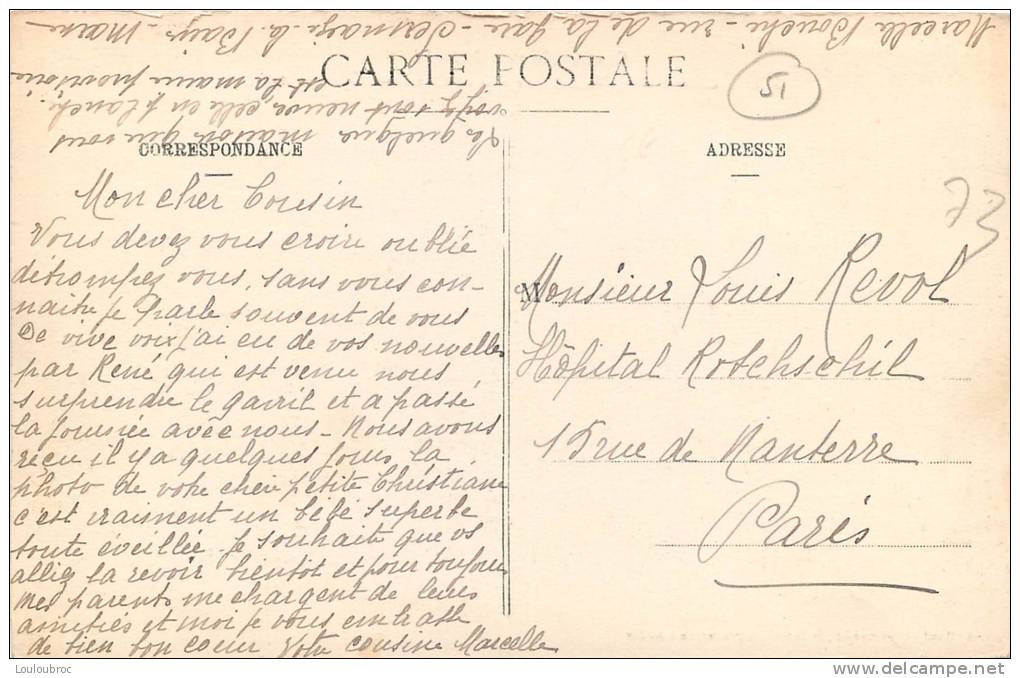 Marcelle Bouché - rue de la Gare - Sermaize-les-Bains - Marne
Les quelques maisons que vous
voyez sont neuves, celle en planches
est la mairie provisoire
CARTE POSTALE
51
CORRESPONDANCE
ADRESSE
73
Mon cher Cousin
Vous devez vous croire oublié
détrompez vous, sans vous con-
naitre je parle souvent de vous
De vive voix j'ai eu de vos nouvelles
par René qui est venu nous
surprendre le 9 avril et a passé
la journée avec nous - Nous avons
reçu il y a quelques jours la
photo de votre chère petite Christiane
c'est vraiment un bébé superbe
toute éveillée. Je souhaite que vs
alliez la revoir bientôt et pour toujours
Mes parents me chargent de leurs
amitiés et moi je vous embrasse
de bien bon coeur Votre cousine Marcelle
M
Monsieur Louis Revol
Hôpital Rotschschil
15 rue de Nanterre
Paris
Louloubroc
delcampe.net